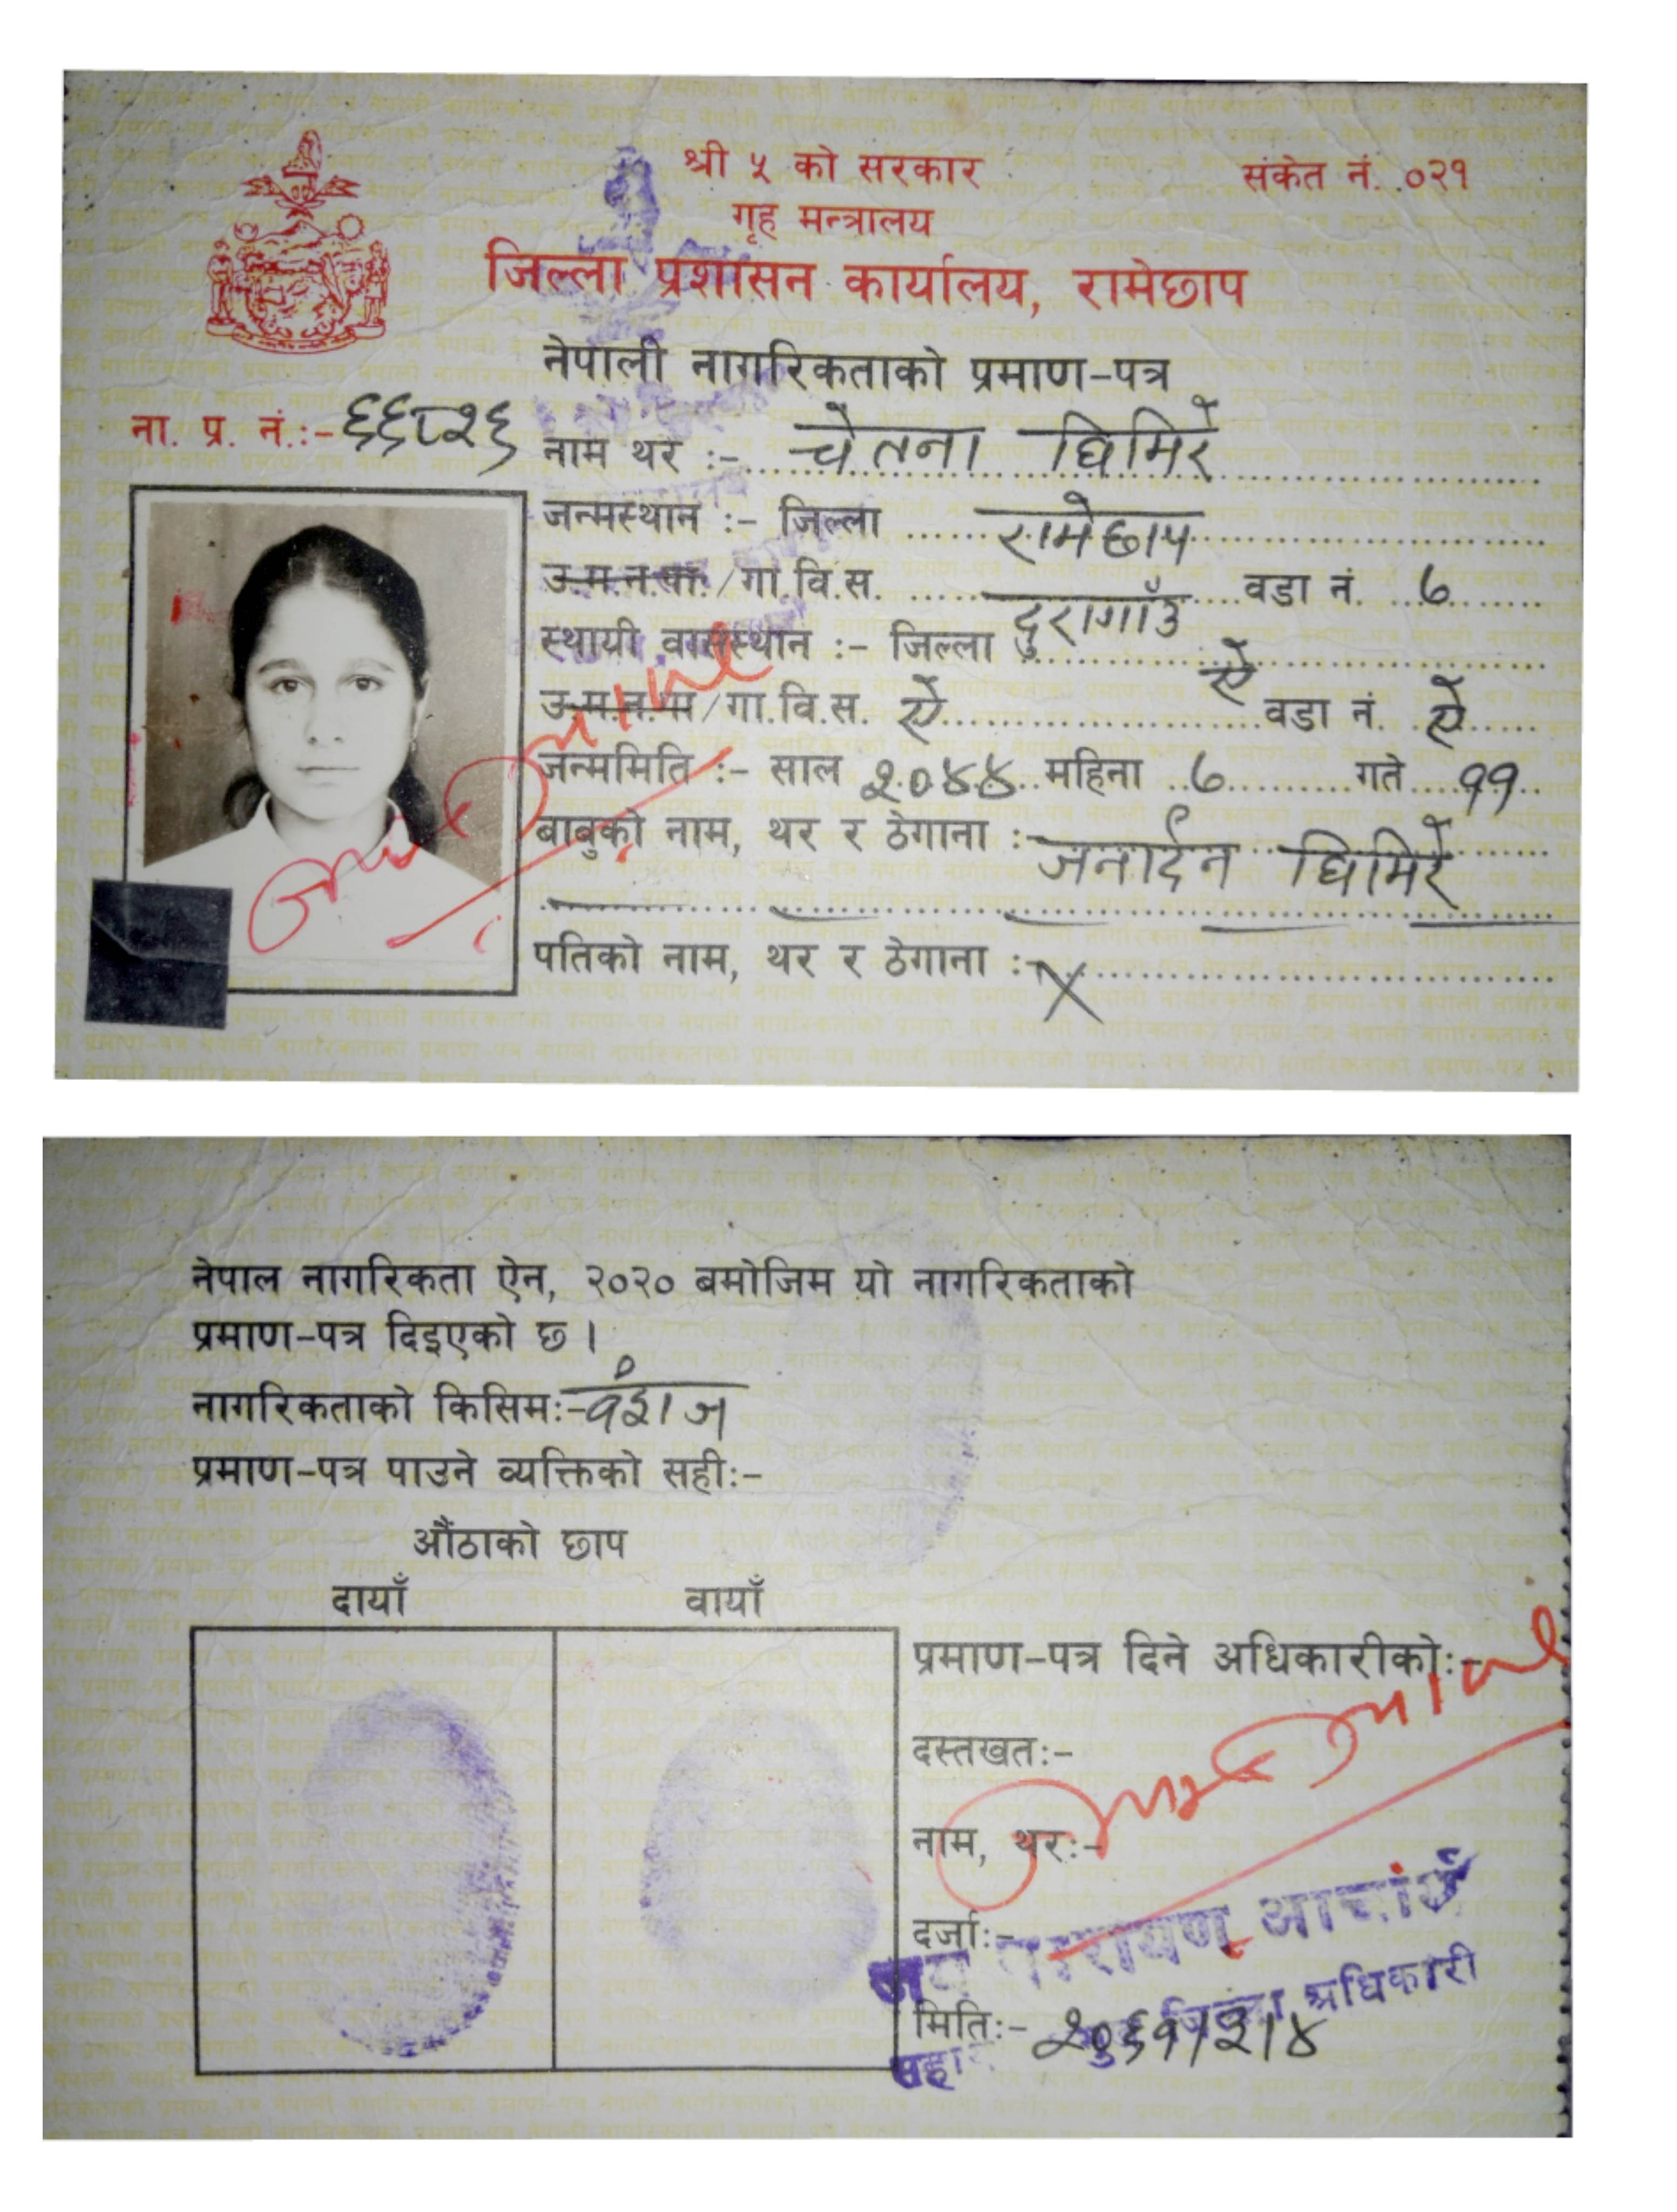 श्री ५ को सरकार
संकेत नं. ०२१
गृह मन्त्रालय
जिल्ला प्रशासन कार्यालय, रामेछाप
नेपाली नागरिकताको प्रमाण-पत्र
ना. प्र. नं.:- ६६८२६
नाम थर :- चेतना घिमिरे
जन्मस्थान :- जिल्ला रामेछाप
उ.म.न.पा./गा.वि.स. दुरागाउँ वडा नं. ७
स्थायी वासस्थान :- जिल्ला ऐ
उ.म.न.पा/गा.वि.स. ऐ वडा नं. ऐ
जन्ममिति :- साल २०४४ महिना ७ गते ११
बाबुको नाम, थर र ठेगाना :- जनार्दन घिमिरे
पतिको नाम, थर र ठेगाना :- X
नेपाल नागरिकता ऐन, २०२० बमोजिम यो नागरिकताको
प्रमाण-पत्र दिइएको छ ।
नागरिकताको किसिम:- वंशज
प्रमाण-पत्र पाउने व्यक्तिको सही:-
औंठाको छाप
दायाँ वायाँ
प्रमाण-पत्र दिने अधिकारीको:-
दस्तखत:-
नाम, थर:-
नारायण आचार्य
दर्जा:-
जिल्ला अधिकारी
मिति:- २०६१/३/४